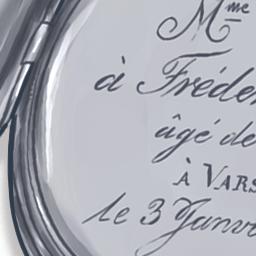 Mme
à Fréder
âgé de
À VARS
le 3 Janvi